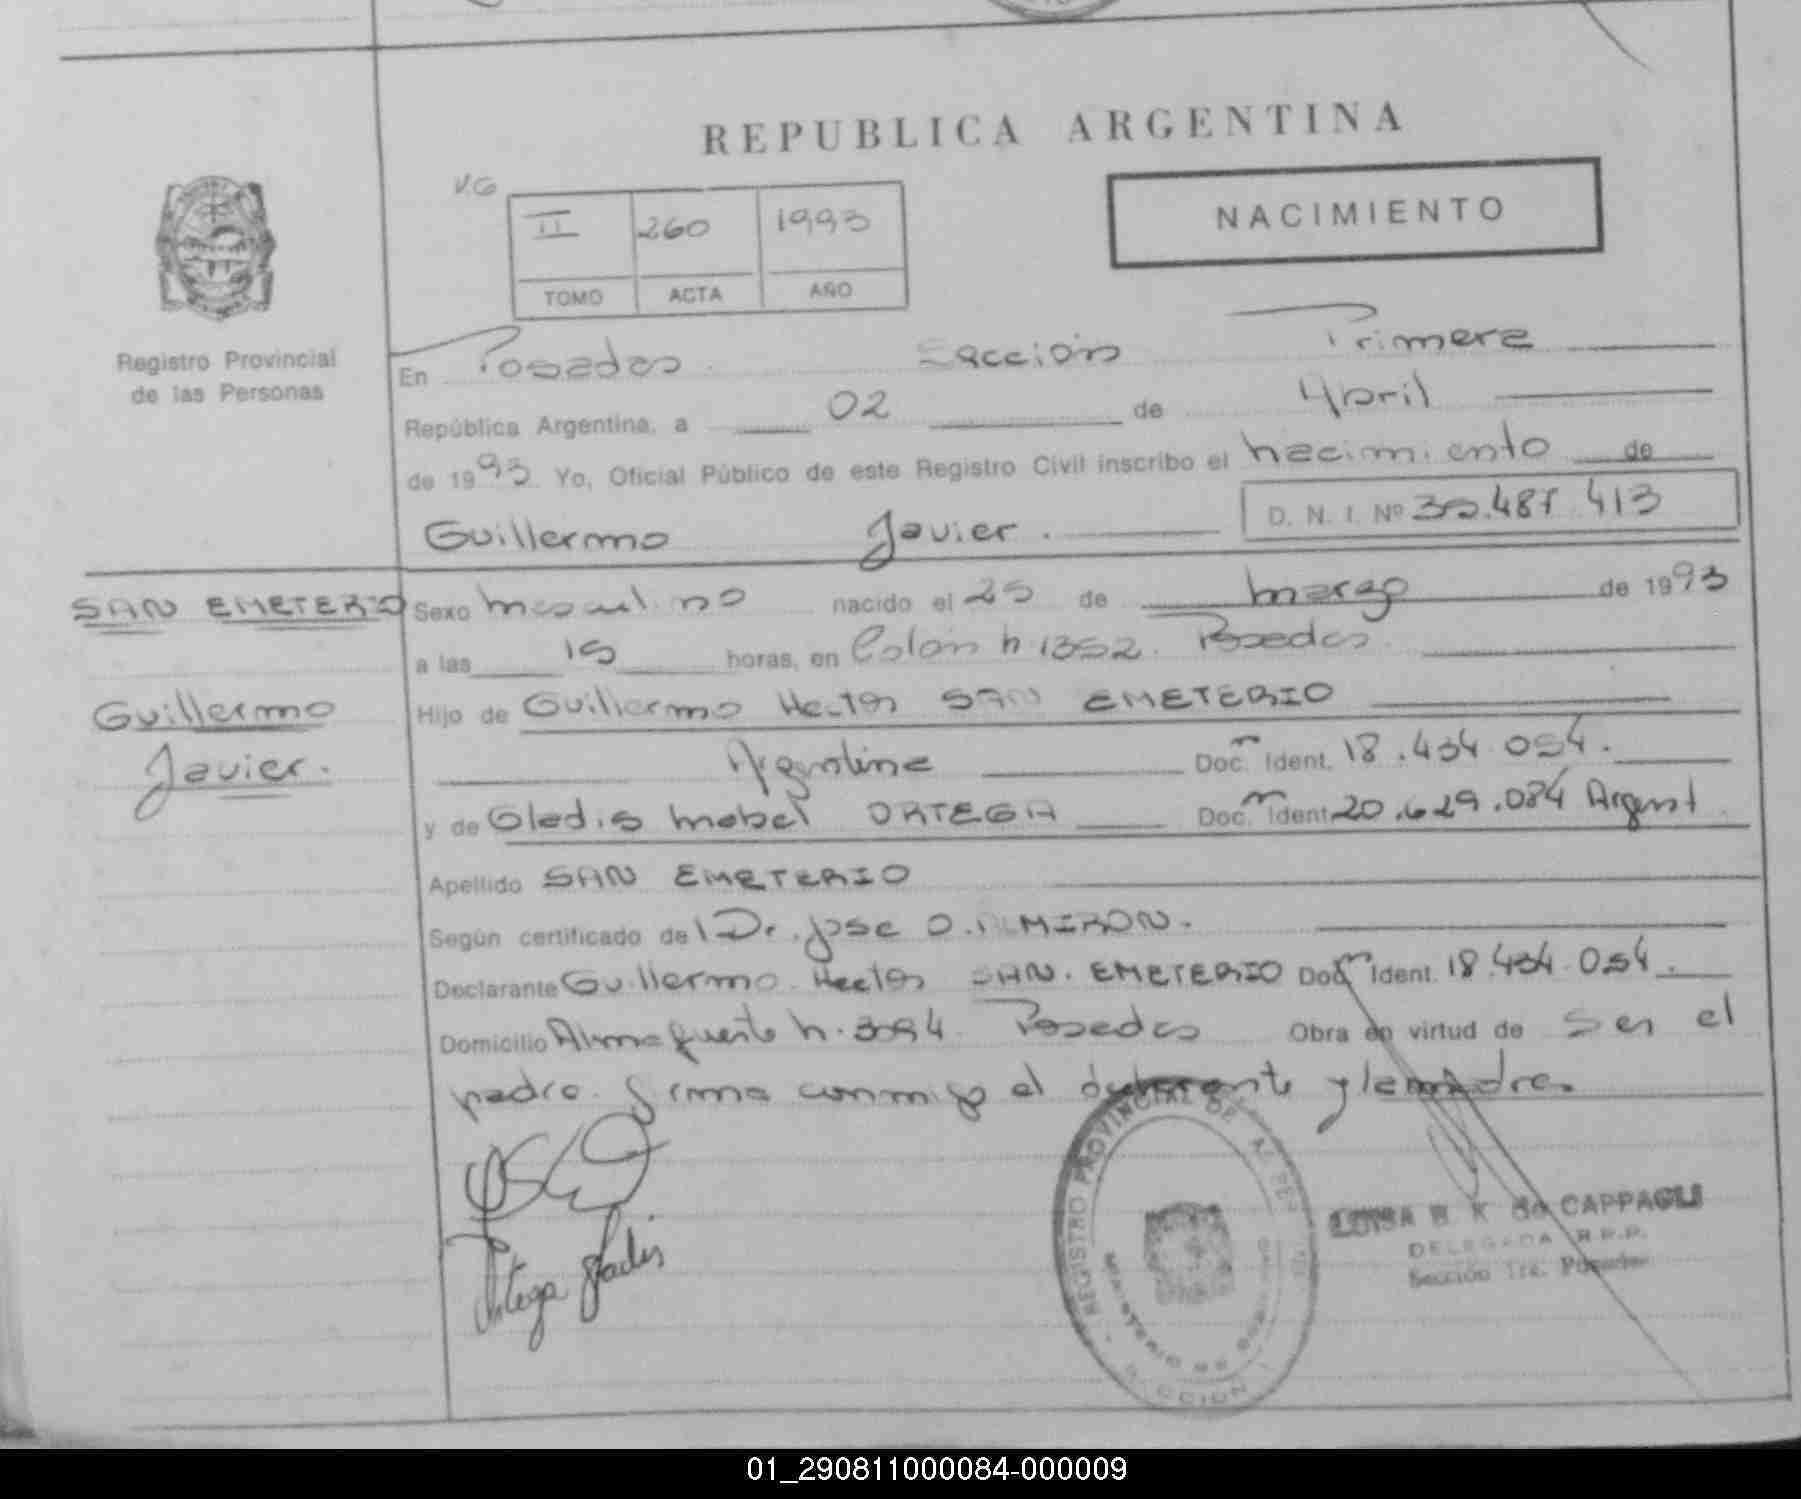 REPUBLICA ARGENTINA
V.G
II 260 1993
TOMO ACTA AÑO
NACIMIENTO
Registro Provincial
de las Personas
En Posadas Sección Primera
República Argentina, a 02 de Abril
de 1993 Yo, Oficial Público de este Registro Civil inscribo el nacimiento de
Guillermo Javier. D. N. I. Nº
SAN EMETERIO
Guillermo
Javier.
Sexo masculino nacido el 25 de marzo de 1993
a las 15 horas, en Colón n. 1352. Posadas.
Hijo de Guillermo Hector SAN EMETERIO
Argentina Doc. Ident. 18.434.054.
y de Gladis Mabel ORTEGA Doc. Ident. 20.629.084 Argent.
Apellido SAN EMETERIO
Según certificado del Dr. Jose O. ALMIRON.
Declarante Guillermo Hector SAN. EMETERIO Doc. Ident. 18.434.054.
Domicilio Almafuerte n. Posadas Obra en virtud de ser el
padre. firma conmigo el declarante y la madre.
Ortega Gladis
REGISTRO PROVINCIAL DE
MINISTERIO DE
LUISA B. K de CAPPAGLI
DELEGADA R.P.P.
Sección 1ra. Posadas
01_290811000084-000009